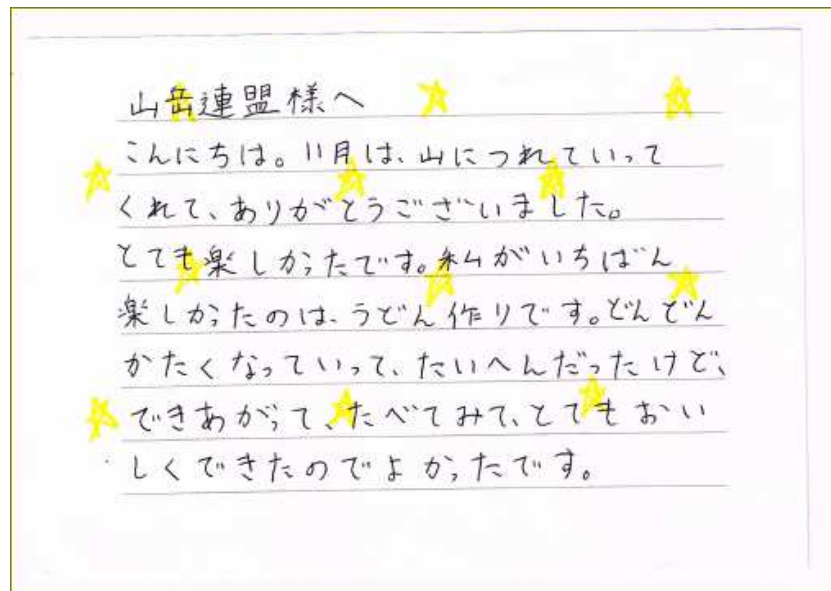 山岳連盟様へ
こんにちは。11月は、山につれていって
くれて、ありがとうございました。
とても楽しかったです。私がいちばん
楽しかったのは、うどん作りです。どんどん
かたくなっていって、たいへんだったけど、
できあがって、たべてみて、とてもおい
しくできたのでよかったです。